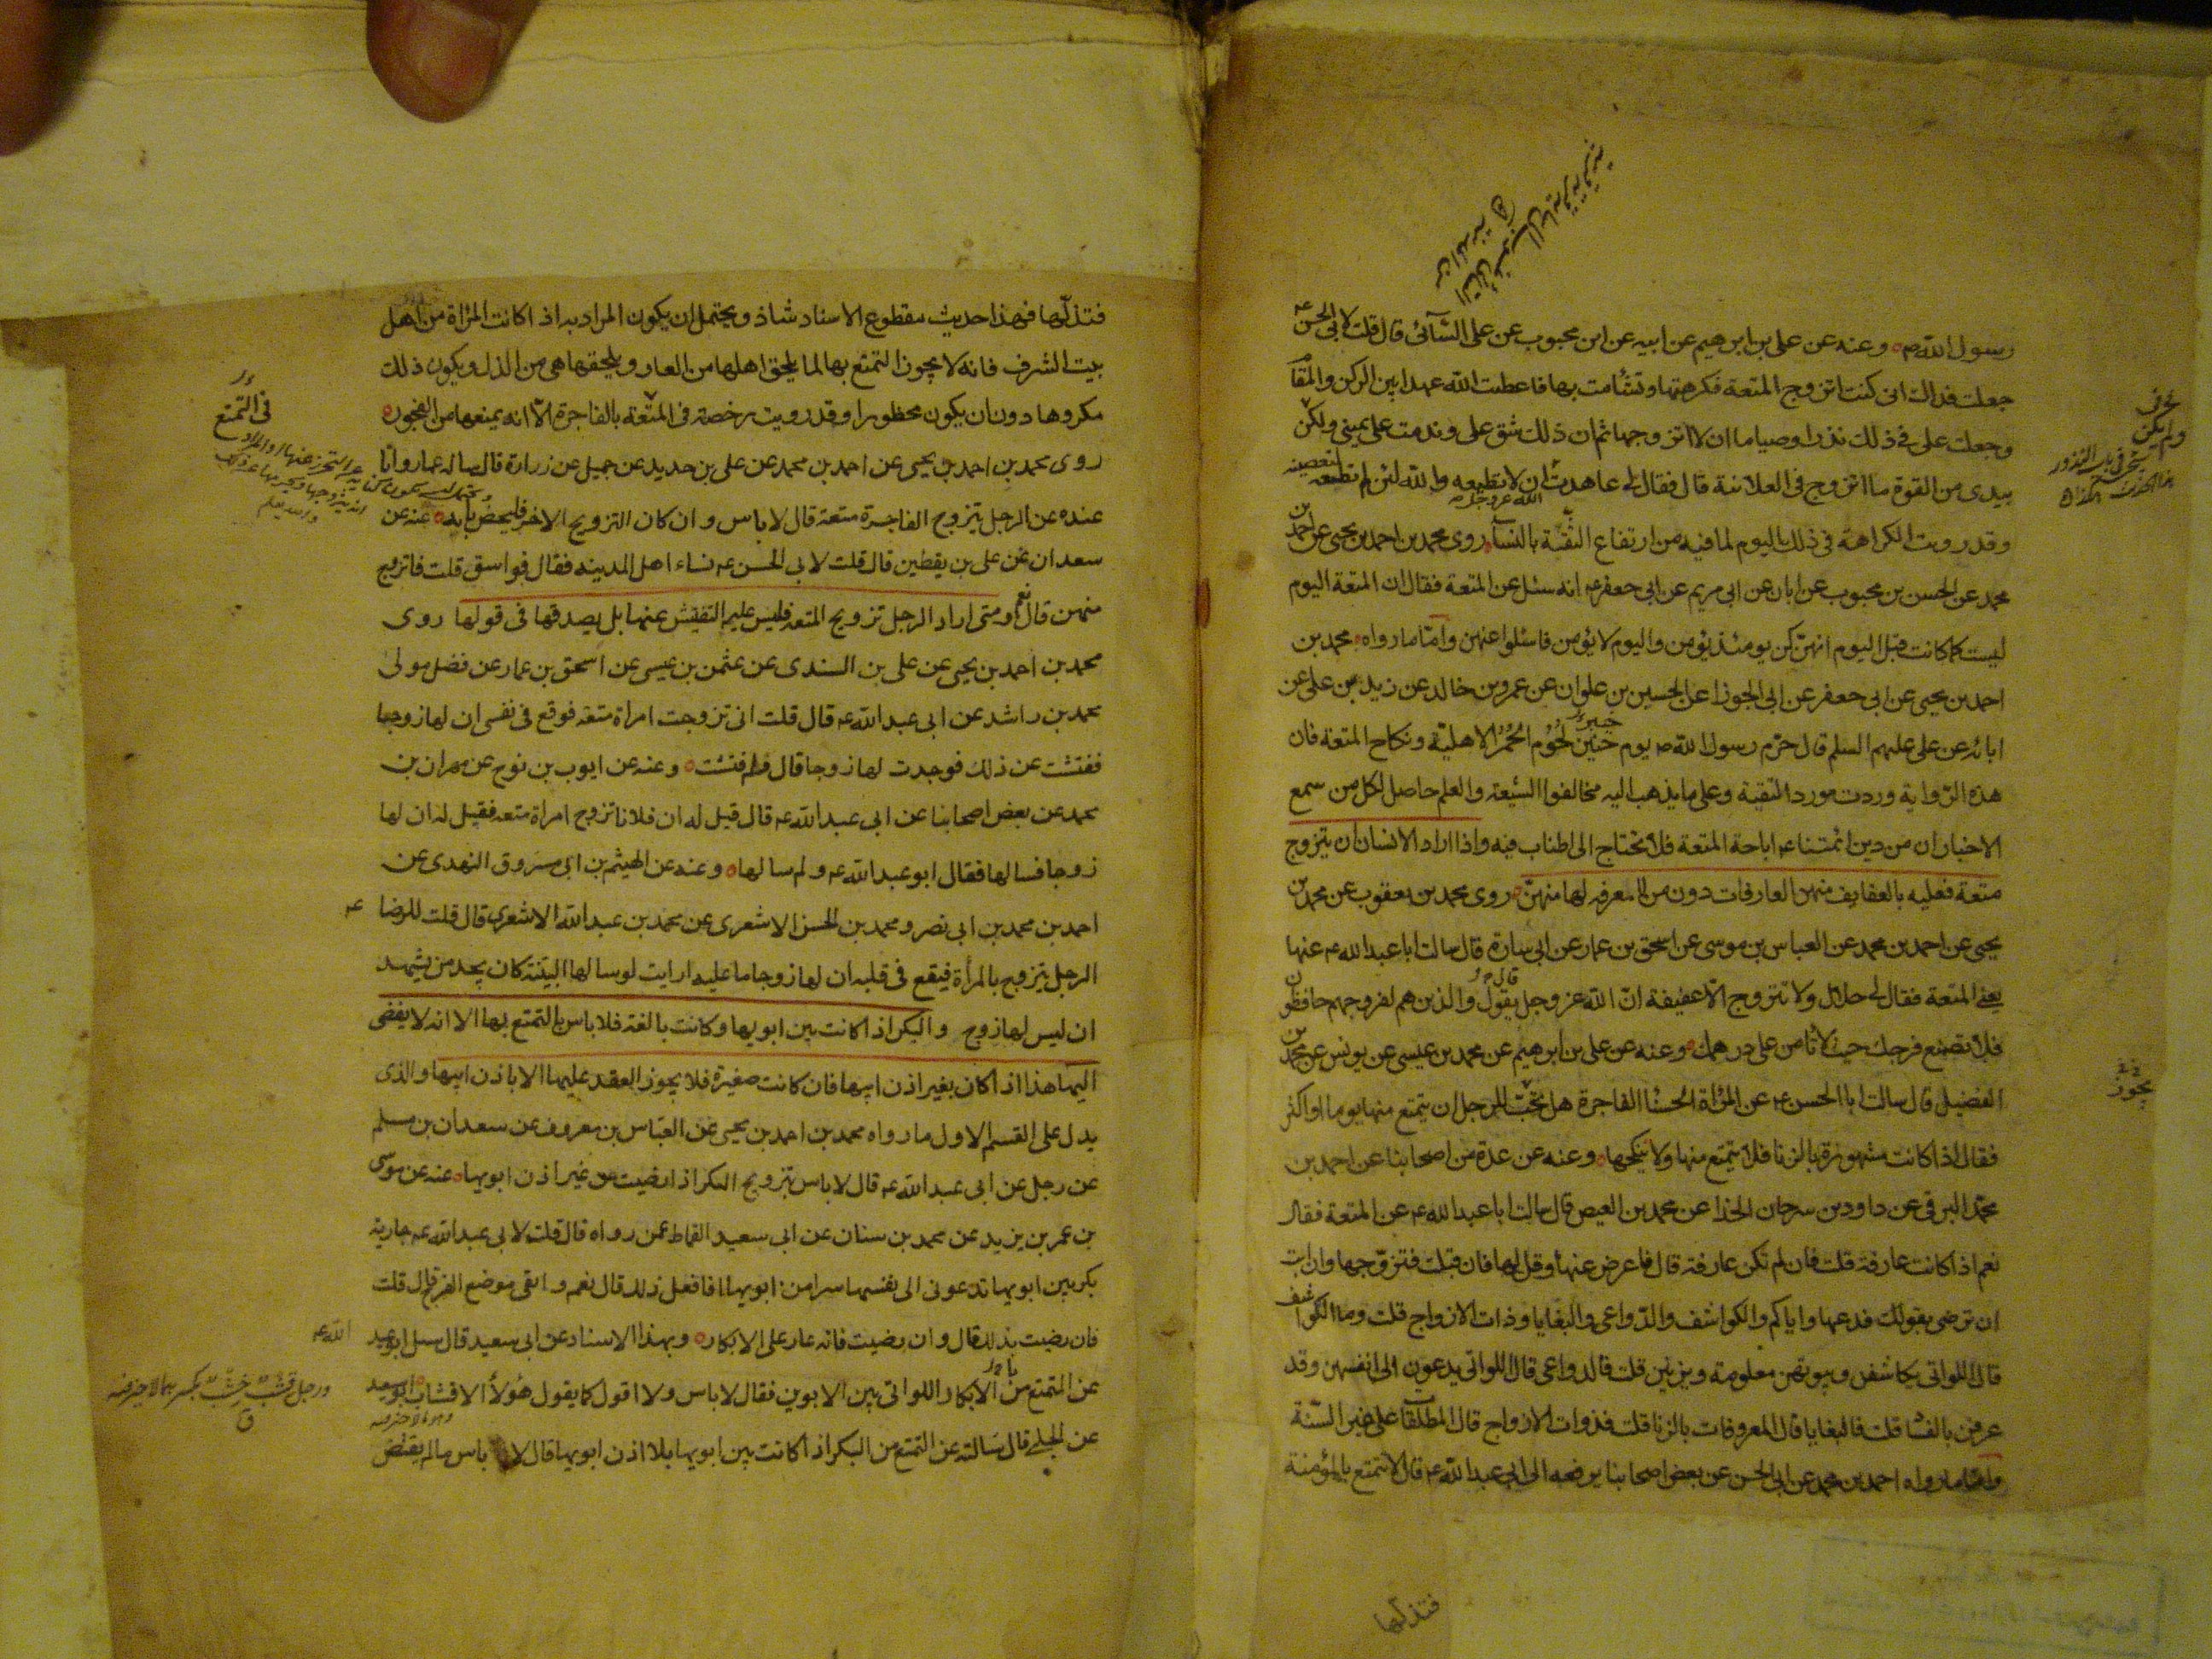 رسول الله ص وعنه عن على بن ابرهيم عن ابيه عن ابن محبوب عن على السائى قال قلت لابى الحسن ع
جعلت فداك انى كنت اتزوج المتعة فكرهتها وتشأمت بها فاعطيت الله عهدا بين الركن والمقام
وجعلت على فى ذلك نذرا وصياما ان لا اتزوجها ثم ان ذلك شق على وندمت على يمينى ولم يكن
بيدى من القوة ما اتزوج فى العلانية قال فقال لى عاهدت الله ان لا تطيعه والله لئن لم تطعه لتعصينه
وقد رويت الكراهة فى ذلك اليوم لما فيه من ارتفاع التقية بالنسآ روى محمد بن احمد بن يحيى عن احمد بن
محمد عن الحسن بن محبوب عن ابان عن ابى مريم عن ابى جعفر ع انه سئل عن المتعة فقال ان المتعة اليوم
ليست كما كانت قبل اليوم انهن كن يومئذ يؤمن واليوم لا يؤمن فاسئلوا عنهن واما ما رواه محمد بن
احمد بن يحيى عن ابى جعفر عن ابى الجوزا عن الحسين بن علوان عن عمرو بن خالد عن زيد بن على عن
ابائه عن على عليهم السلم قال حرم رسول الله ص يوم خيبر لحوم الحمر الاهلية ونكاح المتعة فان
هذه الرواية وردت مورد التقية وعلى ما يذهب اليه مخالفوا الشيعة والعلم حاصل لكل من سمع
الاخبار ان من دين ائمتنا ع اباحة المتعة فلا نحتاج الى اطناب فيه واذا اراد الانسان ان يتزوج
متعة فعليه بالعفايف منهن العارفات دون من لا معرفه لها منهن روى محمد بن يعقوب عن محمد بن
يحيى عن احمد بن محمد عن العباس بن موسى عن اسحق بن عمار عن ابى سارة قال سالت ابا عبد الله ع عنها
يعنى المتعة فقال لى حلال ولا تتزوج الا عفيفة ان الله عز وجل يقول والذين هم لفروجهم حافظون
فلا تضع فرجك حيث لا تامن على درهمك وعنه عن على بن ابرهيم عن محمد بن عيسى عن يونس عن محمد بن
الفضيل قال سالت ابا الحسن ع عن المرأة الحسنا الفاجرة هل تحب للرجل ان يتمتع منها يوما او اكثر
يجوز
فقال اذا كانت مشهورة بالزنا فلا يتمتع منها ولا ينكحها وعنه عن عدة من اصحابنا عن احمد بن
محمد البرقى عن داود بن سرحان الحذا عن محمد بن العيص قال سالت ابا عبد الله ع عن المتعة فقال
نعم اذا كانت عارفة قلت فان لم تكن عارفة قال فاعرض عنها وقل لها فان قبلت فتزوجها وان ابت
ان ترضى بقولك فدعها واياكم والكواشف والدواعى والبغايا وذات الازواج قلت وما الكواشف
قال اللواتى يكاشفن وبيوتهن معلومة ويزنين قلت فالدواعى قال اللواتى يدعون الى انفسهن وقد
عرفن بالفسا قلت فالبغايا قال المعروفات بالزنا قلت فذوات الازواج قال المطلقات على غير السنة
واما ما رواه احمد بن محمد عن ابى الحسن عن بعض اصحابنا يرفعه الى ابى عبد الله ع قال لا تتمتع بالمؤمنة
فتذلها
فتذلها فهذا حديث مقطوع الاسناد شاذ ويحتمل ان يكون المراد به اذا كانت المرأة من اهل
بيت الشرف فانه لا يجوز التمتع بها لما يلحق اهلها من العار ويلحقها هى من الذل ويكون ذلك
مكروها دون ان يكون محظورا وقد رويت رخصة فى المتعة بالفاجرة الا انه يمنعها من الفجور
فى التمتع
روى محمد بن احمد بن يحيى عن احمد بن محمد عن على بن حديد عن جميل عن زرارة قال ساله عمار وانا
عنده عن الرجل يتزوج الفاجرة متعة قال لا باس وان كان التزويج الاخر فليحصن بابه عنه عن
سعدان عن على بن يقطين قال قلت لابى الحسن ع نساء اهل المدينه فقال فواسق قلت فاتزوج
منهن قال نعم ومتى اراد الرجل تزويج المتعه فليس عليه التفتيش عنها بل يصدقها فى قولها روى
محمد بن احمد بن يحيى عن على بن السندى عن عثمن بن عيسى عن اسحق بن عمار عن فضل مولى
محمد بن راشد عن ابى عبد الله ع قال قلت انى تزوجت امراة متعه فوقع فى نفسى ان لها زوجا
ففتشت عن ذلك فوجدت لها زوجا قال ولم فتشت وعنه عن ايوب بن نوح عن مهران بن
محمد عن بعض اصحابنا عن ابى عبد الله ع قال قيل له ان فلانا تزوج امراة متعه فقيل له ان لها
زوجا فسالها فقال ابو عبد الله ع ولم سالها وعنه عن الهيثم بن ابى مسروق النهدى عن
احمد بن محمد بن ابى نصر ومحمد بن الحسن الاشعرى عن محمد بن عبد الله الاشعرى قال قلت للرضا ع
الرجل يتزوج بالمرأة فيقع فى قلبه ان لها زوجا ما عليه ارايت لو سالها البينة كان يجد من يشهد
ان ليس لها زوج والبكر اذا كانت بين ابويها وكانت بالغة فلا باس بالتمتع بها الا انه لا يفضى
اليها هذا اذا كان بغير اذن ابيها فان كانت صغيرة فلا يجوز العقد عليها الا باذن ابيها والذى
يدل على القسم الاول ما رواه محمد بن احمد بن يحيى عن العباس بن معروف عن سعدان بن مسلم
عن رجل عن ابى عبد الله ع قال لا باس بتزويج البكر اذا رضيت من غير اذن ابويها عنه عن موسى
بن عمر بن يزيد عن محمد بن سنان عن ابى سعيد القماط عمن رواه قال قلت لابى عبد الله ع جارية
بكر بين ابويها تدعونى الى نفسها سرا من ابويها افافعل ذلك قال نعم واتق موضع الفرج قال قلت
فان رضيت بذلك قال وان رضيت فانه عار على الابكار وبهذا الاسناد عن ابى سعيد قال سئل ابو عبد الله ع
عن التمتع من الابكار اللواتى بين الابوين فقال لا باس ولا اقول كما يقول هؤلاء الاقشاب ابو سعيد
عن الحلبى قال سالته عن التمتع من البكر اذا كانت بين ابويها بلا اذن ابويها قال لا باس ما لم يقتض